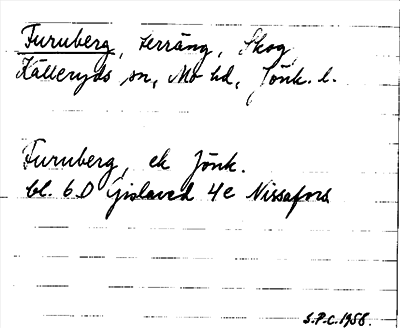 Furuberg, terräng, Skog,
Källeryds sn, Mo hd, Jönk. l.
Furuberg, ek Jönk.
bl. 6D Gislaved 4e Nissafors
S.P.C. 1958.